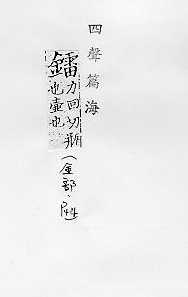 四聲篇海
鐳
力回切瓶
也壺也
(金部、